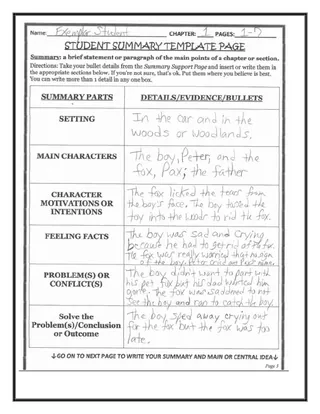 Name: Exemplar Student CHAPTER: 1 PAGES: 1-7
STUDENT SUMMARY TEMPLATE PAGE
Summary: a brief statement or paragraph of the main points of a chapter or section.
Directions: Take your bullet details from the Summary Support Page and insert or write them in
the appropriate sections below. If you're not sure, that's ok. Put them where you believe is best.
You can write more than 1 detail in any box.
SUMMARY PARTS DETAILS/EVIDENCE/BULLETS
SETTING
In the car and in the
woods or woodlands.
MAIN CHARACTERS
The boy, Peter, and the
fox, Pax; the father
CHARACTER
MOTIVATIONS OR
INTENTIONS
The fox licked the tears from
the boy's face. The boy tossed the
toy into the woods to rid the fox.
FEELING FACTS
The boy was sad and crying
because he had to get rid of
The fox was really worried
of the boy.
PROBLEM(S) OR
CONFLICT(S)
The boy didn't want to part with
his pet fox but his dad wanted him
gone. The fox was saddened to not
see the boy and ran to catch the boy.
Solve the
Problem(s)/Conclusion
or Outcome
The boy sped away crying out
for the fox but the fox was too
late.
↓GO ON TO NEXT PAGE TO WRITE YOUR SUMMARY AND MAIN OR CENTRAL IDEA↓
Page 3